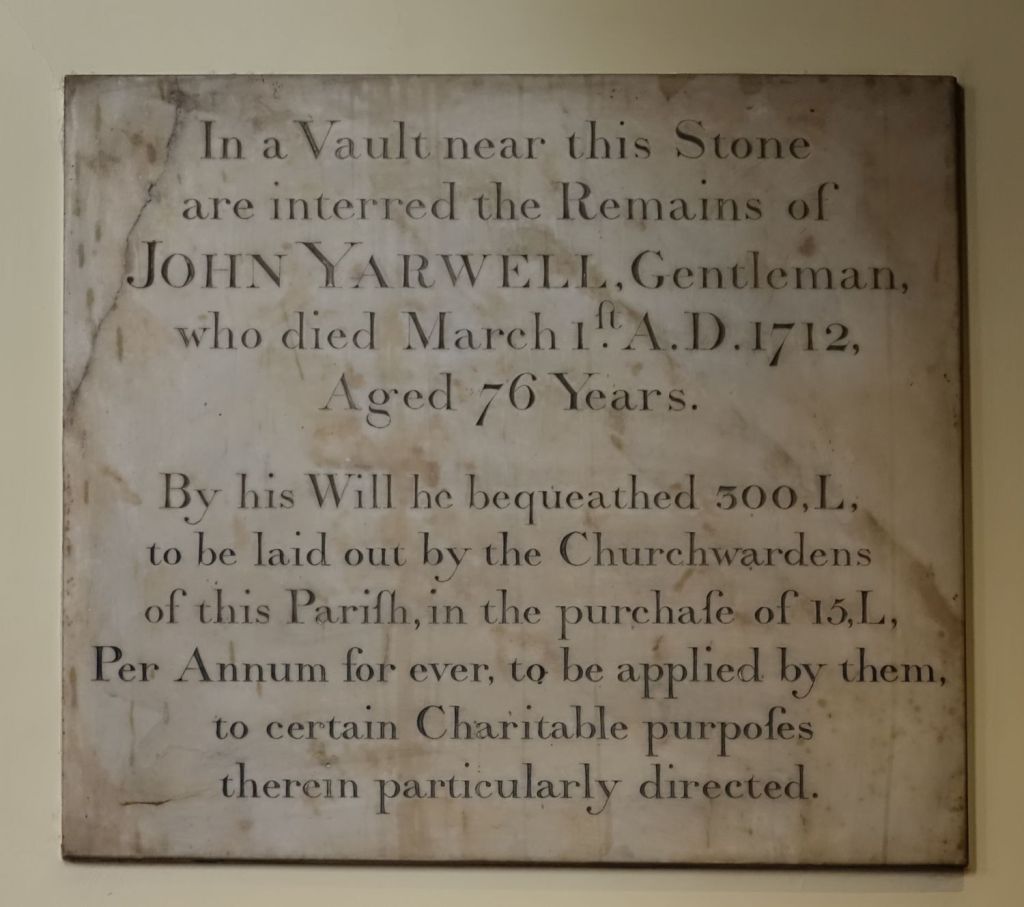 In a Vault near this Stone
are interred the Remains of
JOHN YARWELL, Gentleman,
who died March 1.ſt A.D. 1712,
Aged 76 Years.
By his Will he bequeathed 300,L,
to be laid out by the Churchwardens
of this Pariſh, in the purchaſe of 15,L,
Per Annum for ever, to be applied by them,
to certain Charitable purpoſes
therein particularly directed.